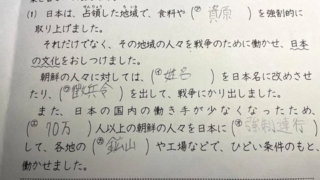 (1) 日本は、占領した地域で、食料や(② 資原 )を強制的に
取り上げました。
それだけでなく、その地域の人々を戦争のために働かせ、日本
の文化をおしつけました。
朝鮮の人々に対しては、(④ 姓名 )を日本名に改めさせ
たり、(⑤徴兵令 )を出して、戦争にかり出しました。
また、日本の国内の働き手が少なくなったため、
( 70万 )人以上の朝鮮の人々を日本に( 強制連行 )
して、各地の( 鉱山 )や工場などで、ひどい条件のもと、
働かせました。